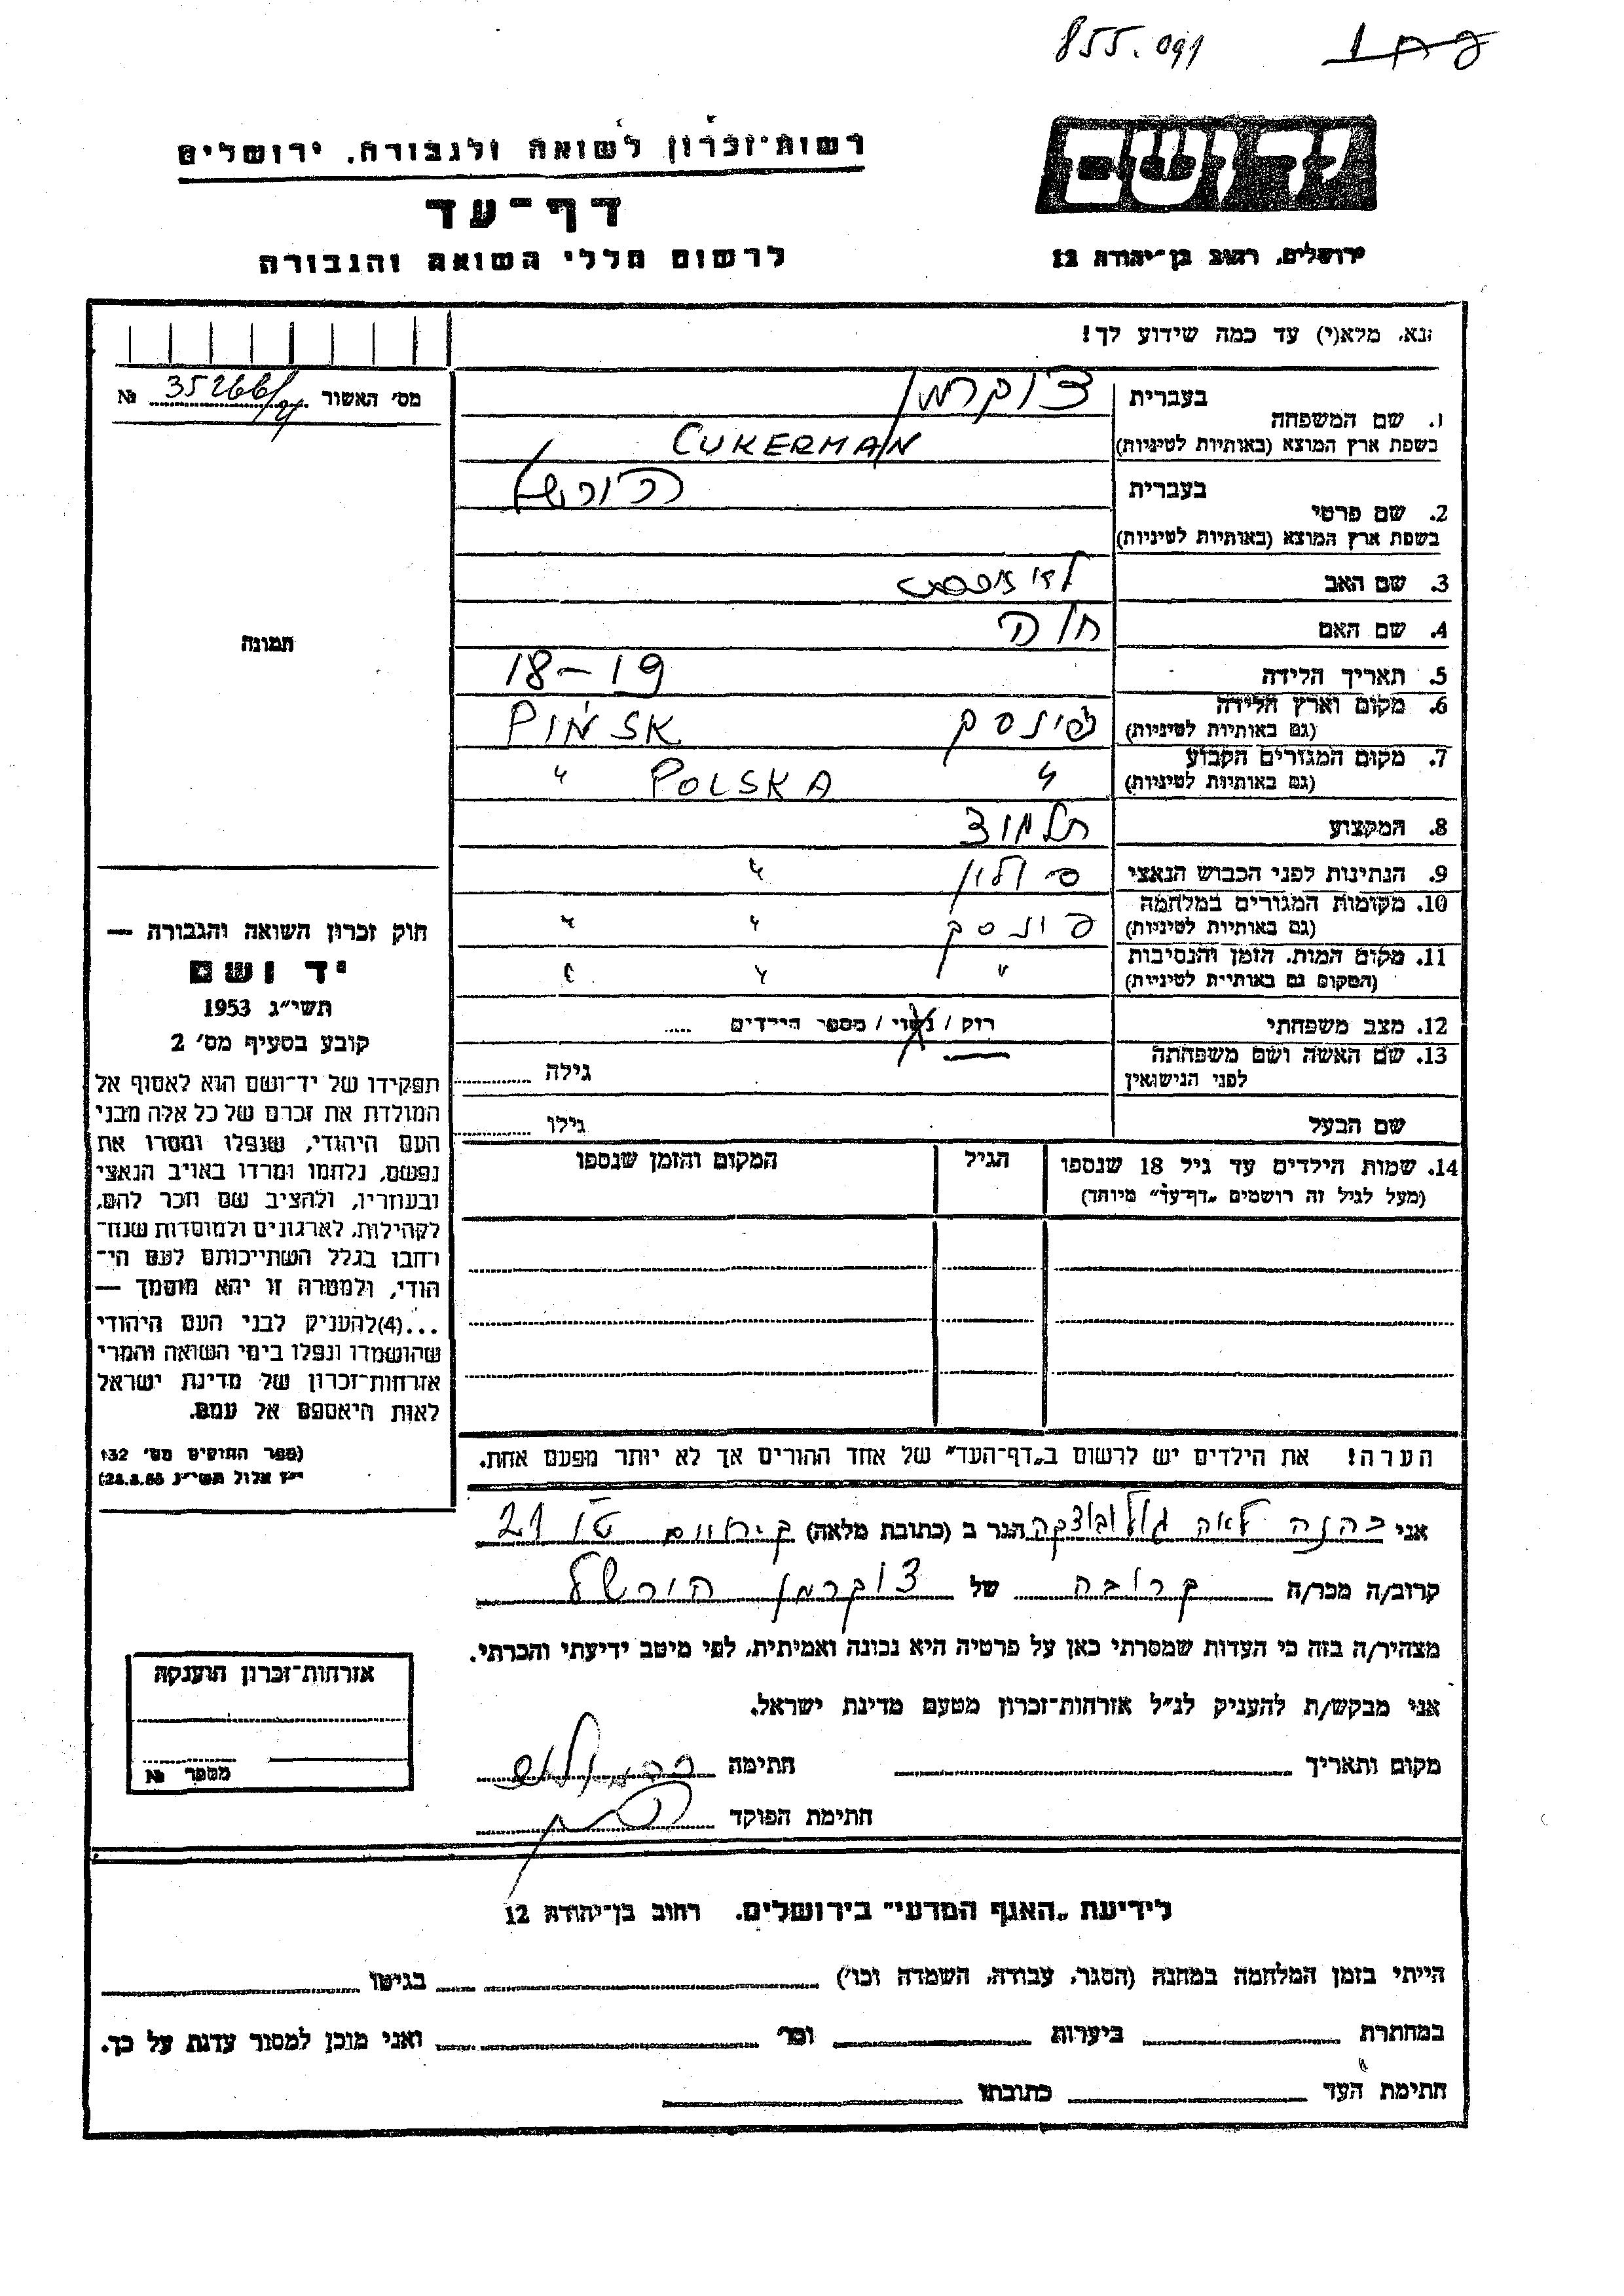 855.091
דף 1
רשות־זכרון לשואה ולגבורה, ירושלים
יד ושם
דף־עד
לרשום חללי השואה והגבורה
ירושלים, רחוב בן־יהודה 12
נא, מלא(י) עד כמה שידוע לך!
מס׳ האשור 35266/ №
1. שם המשפחה
בעברית צוקרמן
בשפת ארץ המוצא (באותיות לטיניות) CUKERMAN
2. שם פרטי
בעברית הורשל
בשפת ארץ המוצא (באותיות לטיניות)
3. שם האב
4. שם האם חוה
5. תאריך הלידה 18-19
6. מקום וארץ הלידה
(גם באותיות לטיניות) פינסק
7. מקום המגורים הקבוע
(גם באותיות לטיניות) " POLSKA "
8. המקצוע
9. הנתינות לפני הכבוש הנאצי פולין "
10. מקומות המגורים במלחמה
(גם באותיות לטיניות) פינסק " "
11. מקום המות, הזמן והנסיבות
(המקום גם באותיות לטיניות) " " "
12. מצב משפחתי רוק / נשוי / מספר הילדים .....
13. שם האשה ושם משפחתה
לפני הנישואין גילה
שם הבעל גילו
14. שמות הילדים עד גיל 18 שנספו
(מעל לגיל זה רושמים „דף־עד״ מיוחד)
הגיל
המקום והזמן שנספו
הערה! את הילדים יש לרשום ב„דף־העד״ של אחד ההורים אך לא יותר מפעם אחת.
תמונה
חוק זכרון השואה והגבורה —
יד ושם
תשי״ג 1953
קובע בסעיף מס׳ 2
תפקידו של יד־ושם הוא לאסוף אל
המולדת את זכרם של כל אלה מבני
העם היהודי, שנפלו ומסרו את
נפשם, נלחמו ומרדו באויב הנאצי
ובעוזריו, ולהציב שם וזכר להם,
לקהילות, לארגונים ולמוסדות שנח־
רחבו בגלל השתייכותם לעם הי־
הודי, ולמטרה זו יהא מוסמך —
...(4)להעניק לבני העם היהודי
שהושמדו ונפלו בימי השואה והמרי
אזרחות־זכרון של מדינת ישראל
לאות היאספם אל עמם.
(ספר החוקים מס׳ 132
י״ז אלול תשי״ג 28.8.55)
אני כהנה לאה הגר ב (כתובת מלאה) 21
קרוב/ה מכר/ה קרובה של צוקרמן הורשל
מצהיר/ה בזה כי העדות שמסרתי כאן על פרטיה היא נכונה ואמיתית, לפי מיטב ידיעתי והכרתי.
אני מבקש/ת להעניק לנ״ל אזרחות־זכרון מטעם מדינת ישראל.
מקום ותאריך חתימה
חתימת הפוקד
אזרחות־זכרון הוענקה
מספר №
לידיעת „האגף המדעי״ בירושלים. רחוב בן־יהודה 12
הייתי בזמן המלחמה במחנה (הסגר, עבודה, השמדה וכו׳) בגיטו
במחתרת ביערות וכו׳ ואני מוכן למסור עדות על כך.
חתימת העד כתובתו